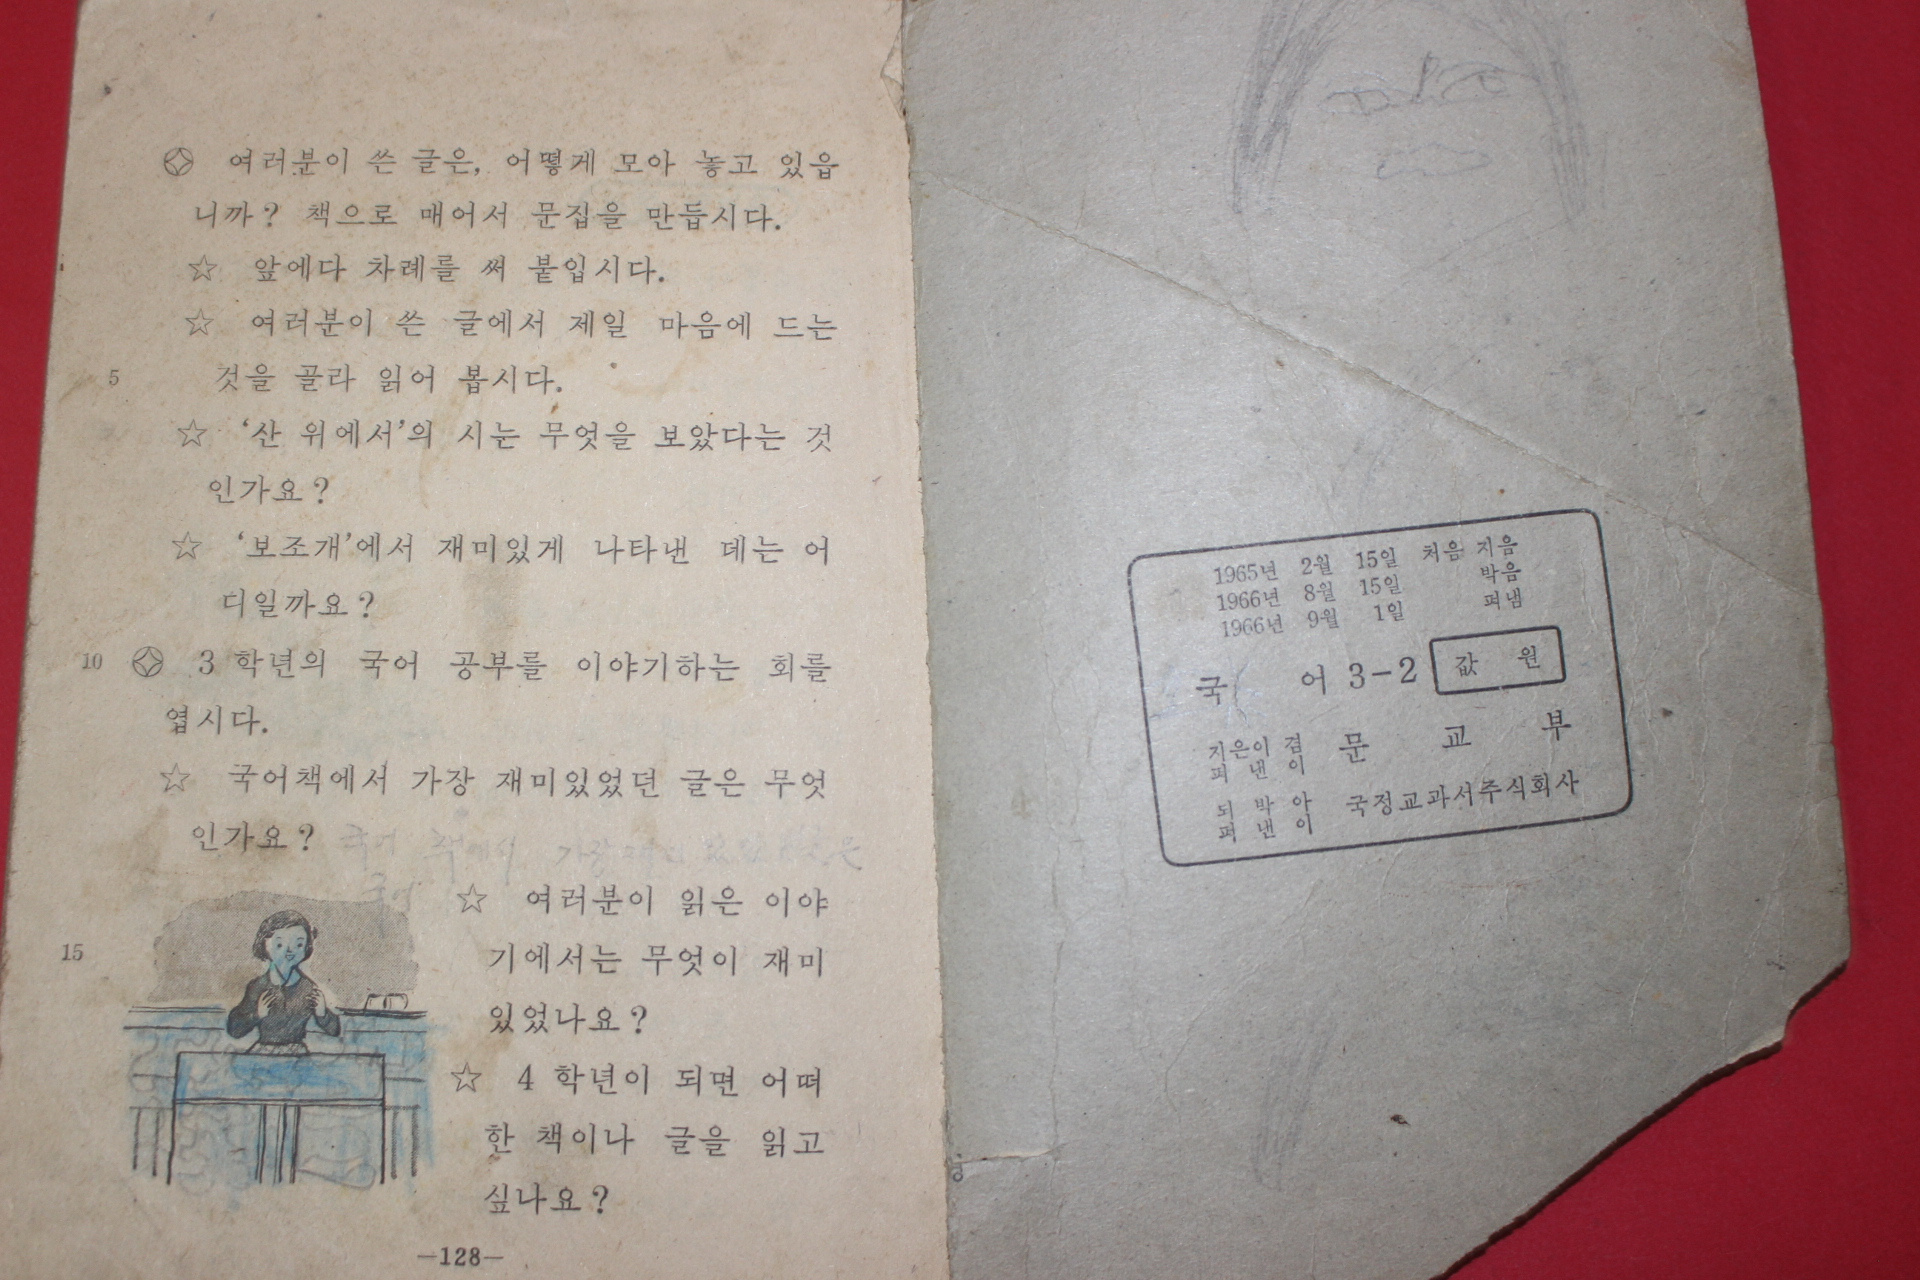 여러분이 쓴 글은, 어떻게 모아 놓고 있읍
니까? 책으로 매어서 문집을 만듭시다.
☆ 앞에다 차례를 써 붙입시다.
☆ 여러분이 쓴 글에서 제일 마음에 드는
5 것을 골라 읽어 봅시다.
☆ ‘산 위에서’의 시는 무엇을 보았다는 것
인가요?
☆ ‘보조개’에서 재미있게 나타낸 데는 어
디일까요?
10 3 학년의 국어 공부를 이야기하는 회를
엽시다.
☆ 국어책에서 가장 재미있었던 글은 무엇
인가요?
☆ 여러분이 읽은 이야
15 기에서는 무엇이 재미
있었나요?
☆ 4 학년이 되면 어떠
한 책이나 글을 읽고
싶나요?
—128—
1965년 2월 15일 처음 지음
1966년 8월 15일 박음
1966년 9월 1일 펴냄
국 어 3-2 값 원
지은이 겸 문 교 부
펴 낸 이
되 박 아 국정교과서주식회사
펴 낸 이